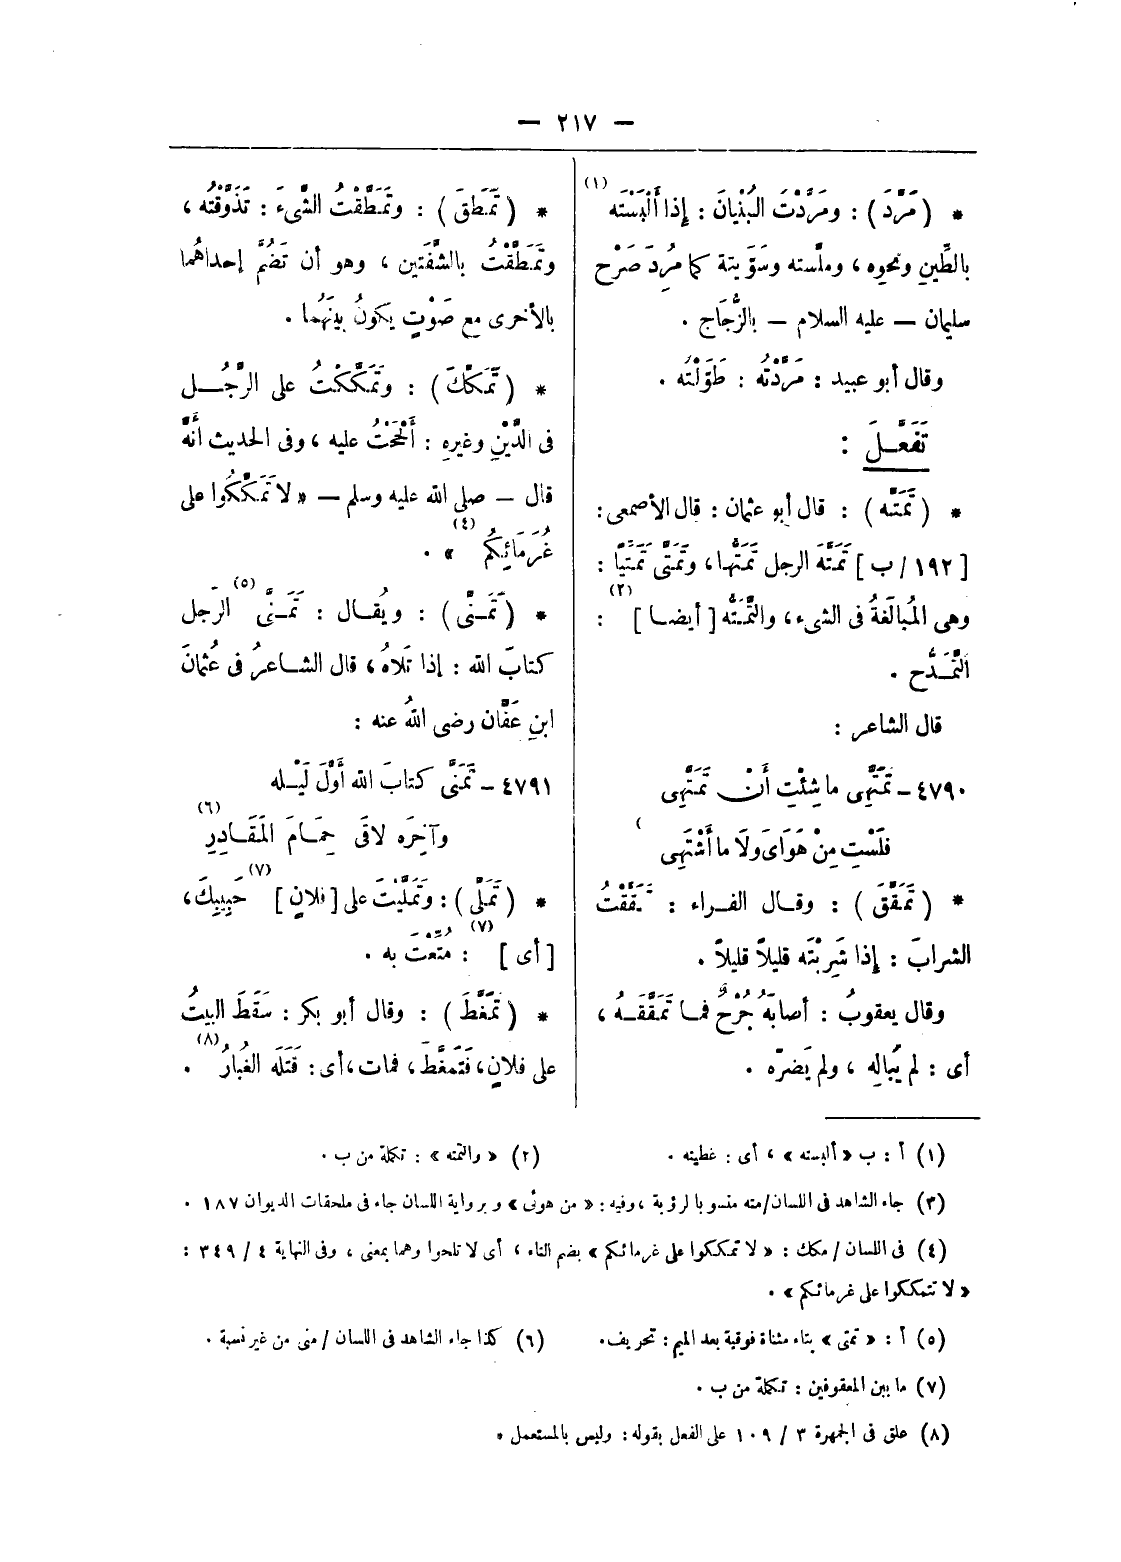 — ٢١٧ —
* ( مَرَّدَ ) : ومَرَّدْتَ البُنْيانَ : إذا أَلْبَسْتَه (١)
بالطِّينِ ونحوِه ، وملَّسته وسَوَّيتة كما مُرِدَ صَرْح
سليمان — عليه السلام — بالزُّجَاج .
وقال أبو عبيد : مَرَّدْتُه : طَوَّلْتُه .
تَفَعَّلَ :
* ( تَمَتَّه ) : قال أبو عثمان : قال الأصمعى :
[ ١٩٢ / ب ] تَمَتَّهَ الرجل تَمَتُّها ، وتَمَتَّى تَمَتِّيًّا :
وهى المُبالَغةُ فى الشىء ، والتَّمَتُّه [ أيضا ] (٢) :
التَّمَدُّح .
قال الشاعر :
٤٧٩٠ – تَمَتَّهِى ما شِئْتِ أَنْ تَمَتَّهِى
)
فلَسْتِ مِنْ هَوَاىَ ولَا ما أَشْتَهِى
* ( تَمَقَّقَ ) : وقال الفراء : تمَقَّقْتُ
الشرابَ : إذا شَرِبْتَه قليلاً قليلاً .
وقال يعقوبُ : أصابَهُ جُرْحٌ فما تَمَقَّقَهُ ،
أى : لم يُبالِه ، ولم يَضرّه .
* ( تَمَطقَ ) : وتَمَطَّقْتُ الشَّىءَ : تَذَوَّقتُه ،
وتَمَطَّقْتُ بالشَّفَتين ، وهو أن تَضُمَّ إحداهُما
بالأخرى مع صَوْتٍ يكونُ بينَهُما .
* ( تَمَكَّكَ ) : وتَمَكَّكْتُ على الرَّجُل
فى الدَّيْنِ وغيرِه : أَلْحَحْتُ عليه ، وفى الحديث أنَّه
قال — صلى الله عليه وسلم — « لا تَمَكَّكُوا على
غُرَمَائِكُم (٤) » .
* ( تَمَنَّى ) : ويُقال : تَمَنَّى (٥) الرَجل
كتابَ الله : إذا تَلاهُ ، قال الشاعرُ فى عُثمانَ
ابنِ عَفَّان رضى اللهُ عنه :
٤٧٩١ – تَمَنَّى كتابَ الله أَوَّلَ لَيْله
وآخِرَه لاقَى حِمَامَ المَقَادِرِ (٦)
* ( تَمَلَّى ) : وتَمَلَّيْتَ على [ فلانٍ ] (٧) حَبِيبِكَ ،
[ أى ] (٧) : مُتِّعْتَ به .
* ( تمَغَّطَ ) : وقال أبو بكر : سَقَطَ البيتُ
على فلانٍ ، فتَمغَّطَ ، فمات ، أى : قَتَلَه الغُبارُ (٨) .
(١) أ : ب « ألبسته » ، أى : غطيته .
(٢) « والتمته » : تكملة من ب .
(٣) جاء الشاهد فى اللسان / مته منسوبا لرؤبة ، وفيه : « من هوئى » وبرواية اللسان جاء فى ملحقات الديوان ١٨٧ .
(٤) فى اللسان / مكك : « لا تمككوا على غرمائكم » بضم التاء ، أى لا تلحوا وهما بمعنى ، وفى النهاية ٤ / ٣٤٩ :
« لا تتمككوا على غرمائكم » .
(٥) أ : « تمتى » بتاء مثناة فوقية بعد الميم : تحريف .
(٦) كذا جاء الشاهد فى اللسان / منى من غير نسبة .
(٧) ما بين المعقوفين : تكملة من ب .
(٨) علق فى الجمهرة ٣ / ١٠٩ على الفعل بقوله : وليس بالمستعمل *